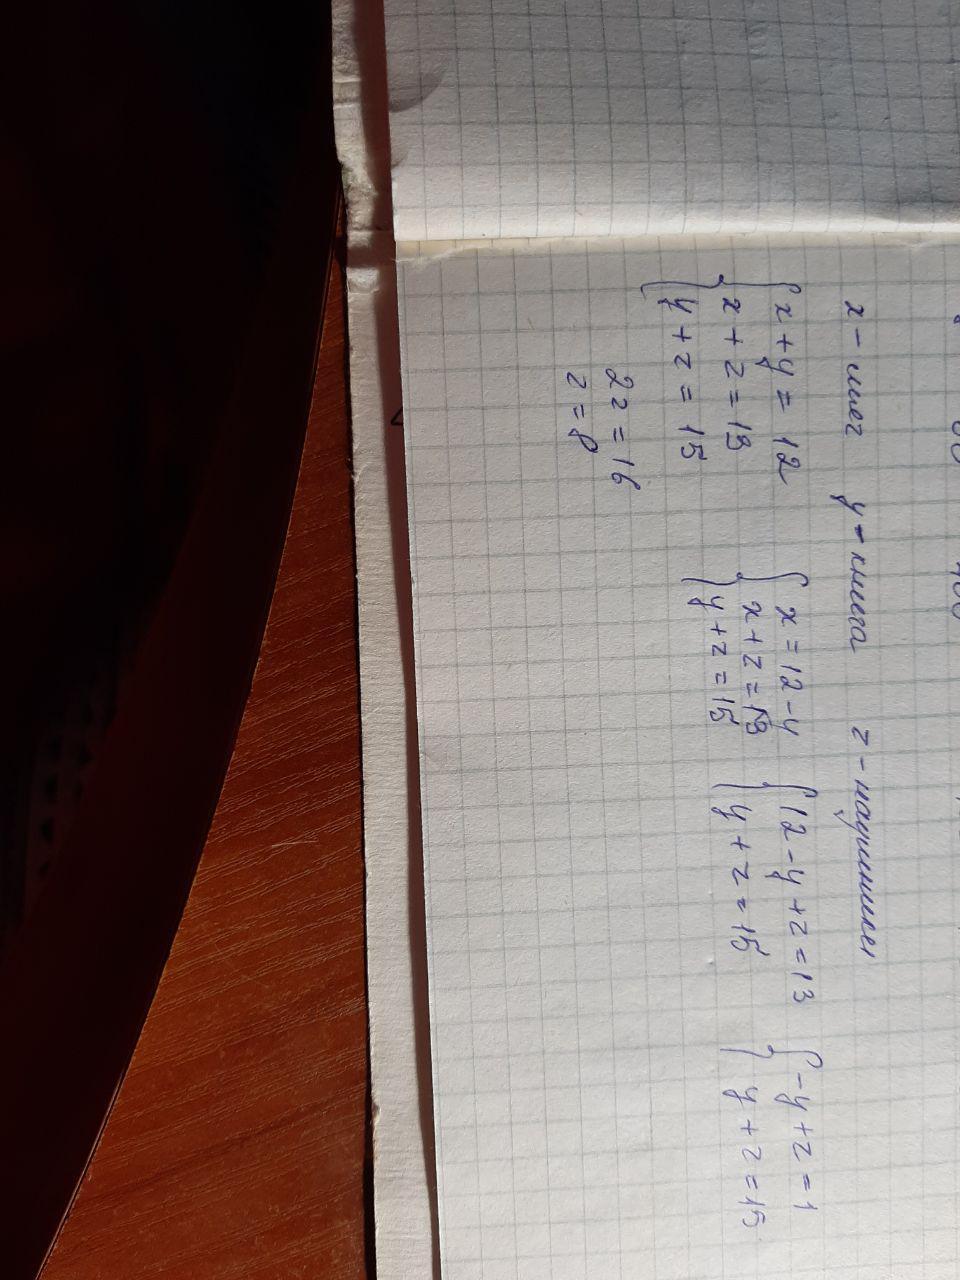 x - мяч y - книга z - наушники
{ x + y = 12
x + z = 13
y + z = 15
{ x = 12 - y
x + z = 13
y + z = 15
{ 12 - y + z = 13
y + z = 15
{ -y + z = 1
y + z = 15
2z = 16
z = 8